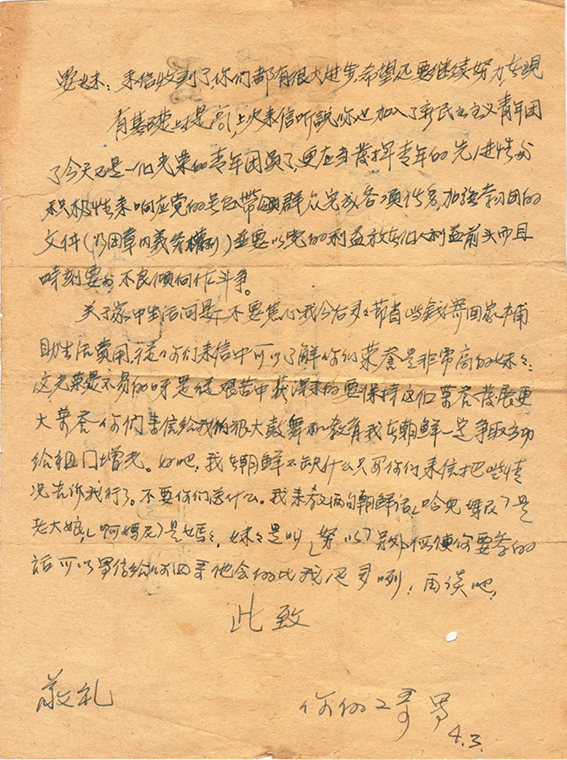 妹：来信收到了，你们都有很大进步，希望还要继续努力在现
有基础上提高，上次来信听説你也加入了新民主主义青年团
了今天已是一个光荣的青年团员了，更应当发挥青年的先进性与
积极性来响应党的号召带领群众完成各项任务，加强学习团的
文件（义务权利）並要以党的利益放在个人利益前头而且
時刻要与不良倾向作斗争。
关于家中生活问题，不要焦心我今后多多节省些錢寄回家補
助生活费用，从你们来信中可以了解你们荣誉是非常高的妹々：
这光荣是不易的呀是从艰苦中获得来的要保持这个荣誉发展更
大荣誉你们来信给我的很大鼓舞和教育我在朝鲜一定争取立功
给祖门增光。好吧，我在朝鲜不缺什么只要你们来信把些情
况告诉我行了。不要你们送什么。我来教你两句朝鲜话，「哈兒媽尼」是
老大娘，「啊媽尼」是媽々，妹々是叫「努以」另外便你要学的
話可以写信给你四哥他会的比我还多咧！再谈吧，
此致
敬礼
你的二哥 写
4.3.